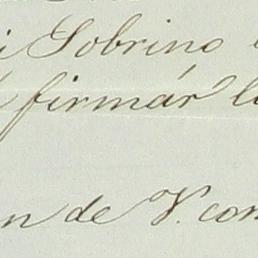 i Sobrino
firmár
de V. con